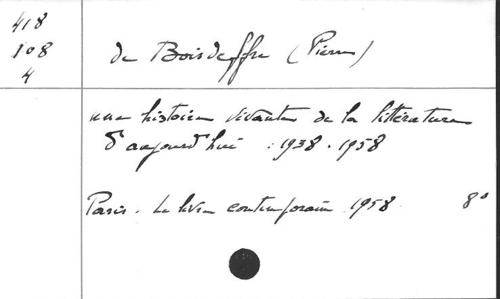 418
108
4
de Boisdeffre (Pierre)
une histoire vivante de la littérature
d'aujourd'hui : 1938-1958
Paris. Le livre contemporain 1958 8°